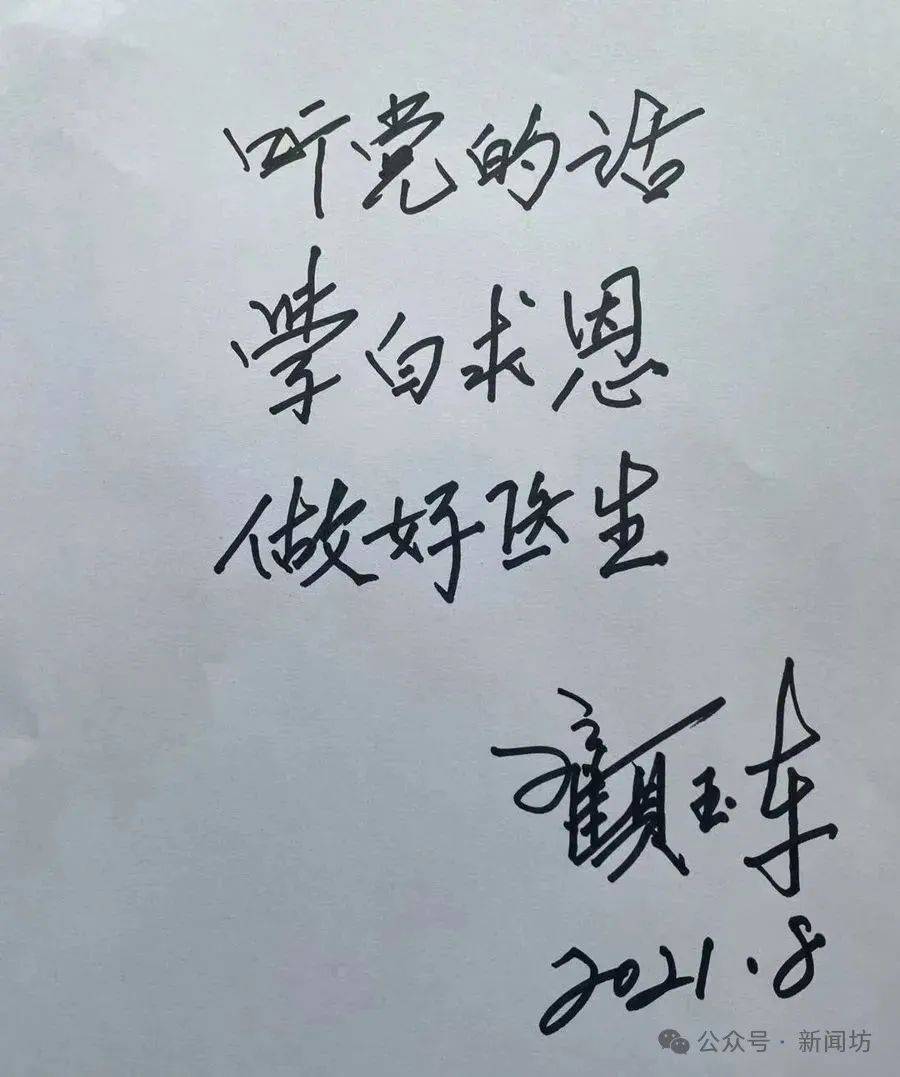 听党的话
学白求恩
做好医生
顾玉东
2021.8
公众号·新闻坊